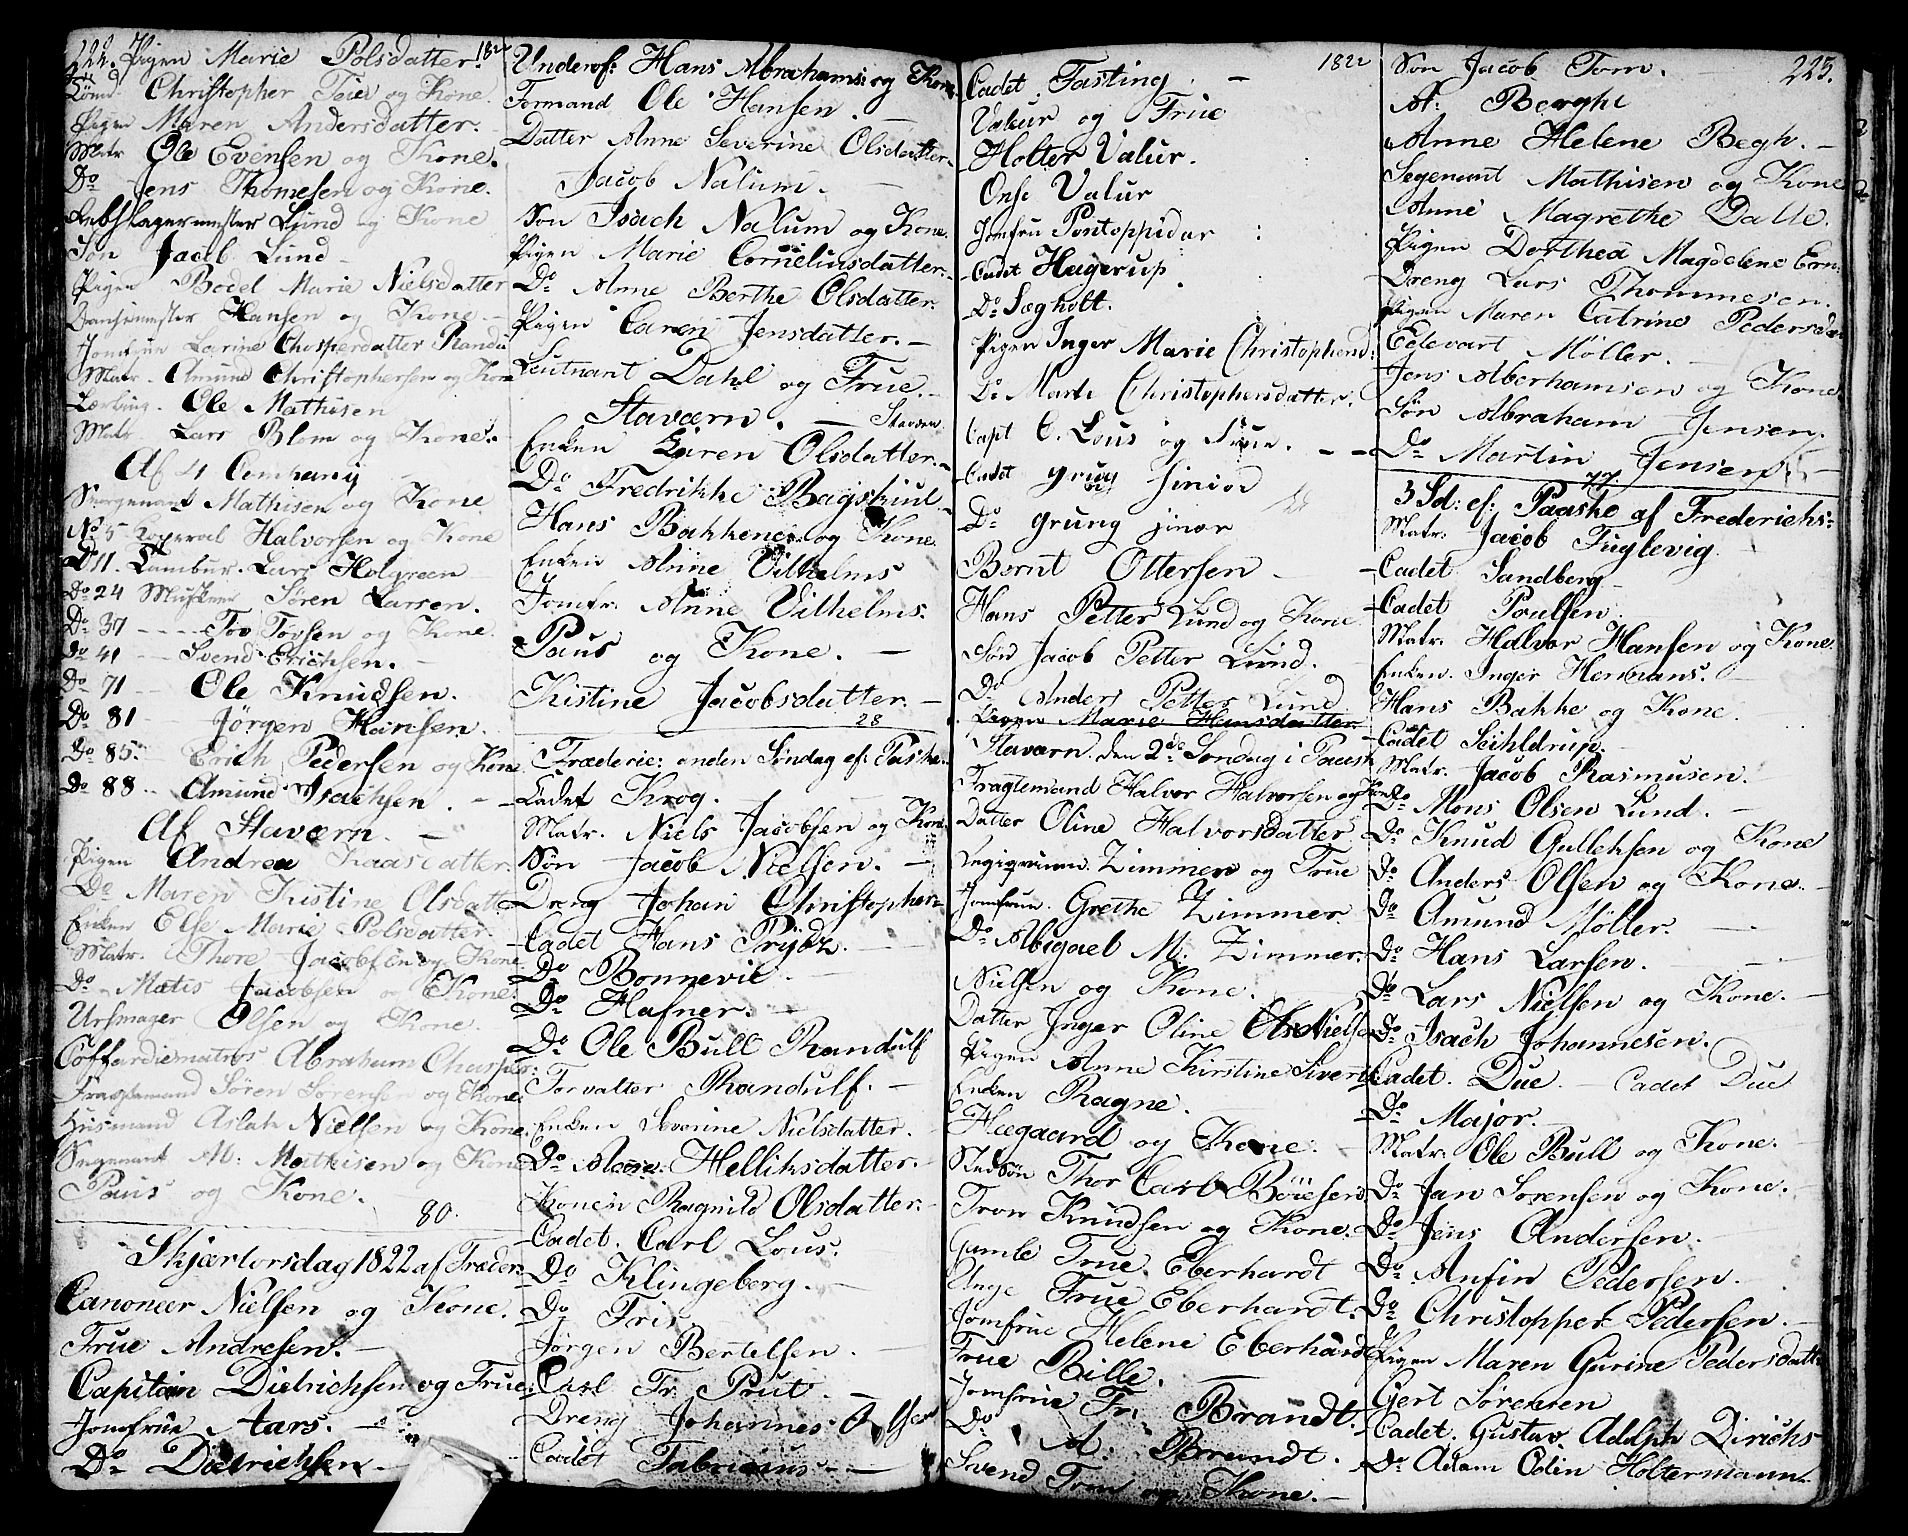 222. Pigen Marie Polsdatter. 182
Christopher Teie og Kone
Pigen Maren Andersdatter.
Matr Ole Evensen og Kone.
Do Jens Thomesen og Kone.
Rebslagermester Lund og Kone
Søn Jacob Lund
Pigen Bodel Marie Nielsdatter
Hansen og Kone.
Jomfrue Larine Chasperdatter
Matr. Amund Christophersen og Kone
Lærling. Ole Mathisen
Matr Lars Blom og Kone.
Af 4 Company
Mathisen og Kone
No 5 Koperal Halvorsen og Kone
Do 11. Tambur. Lars Holgreen
Do 24 Søren Larsen.
Do 37 - - - Tov Tovsen og Kone.
Do 41 Svend Erichsen.
Do 71 Ole Knudsen.
Do 81 Jörgen Hansen.
Do 85. Erich Pedersen og Kone
Do 88 .. Amund Isachsen.
Af Staværn.
Pigen Andrea datter.
Do Maren Kistine Olsdatter
Enken Else Marie Polsdatter.
Matr. Thore Jacobsen og Kone
Do Matis Jacobsen og Kone.
Ursmager Olsen og Kone.
Cofferdiematros Abraham Chasper:
Fragtemand Sören Sørensen og Kone
Husmand Aslak Nielsen og Kone.
M: Mathisen og Kone
Paus og Kone.
80.
Skjærtorsdag 1822 af Freder:
Canoneer Nielsen og Kone.
Frue Andresen.
Capitain Dietrichsen og Frue
Jomfrue Aars.
Do Dietrichsen
Underof: Hans Abrahams: og Kone.
Formand Ole Hansen.
Datter Anne Severine Olsdatter.
Jacob Nalum.
Søn Isach Nalum og Kone.
Pigen Marie Corneliusdatter.
Do Anne Berthe Olsdatter.
Pigen Caren Jensdatter.
Leutnant Dahl og Frue.
Staværn. Staværn
Enken Karen Olsdatter.
Do Fredrikke
Hans Bakkene og Kone.
Enken Anne Vilhelms
Jomfr. Anne Vilhelms.
Paus og Kone.
Kistine Jacobsdatter.
28
Fræderic: anden Søndag ef: Paaske.
Cadet Krog.
Matr. Niels Jacobsen og Kone
Søn Jacob Nielsen.
Dreng Johan Christopher
Cadet Hans Prydz.
Do Bonnevie
Do Hafner.
Do Ole Bull Randulf
Forvalter Randulf.
Enken Severine Nielsdatter.
Do Helliksdatter.
Konen Ragnild Olsdatter.
Cadet. Carl Lous.
Do Klingeberg.
Do Fris.
Jørgen Bertelsen.
Carl Fr. Prut.
Dreng Johannes
Cadet Fabricius
Cadet Fasting. 1822
Valeur og Frue
Holter Valur.
Valur
Jomfru Pontoppidar
Cadet Hagerup.
Do Segholt.
Pigen Inger Marie Christophersd:
Do Marte Christophersdatter.
Capt C. Lous og Frue.
Cadet grung sinior
Do grung jinor
Bernt Ottersen
Hans Petter Lund og Kone.
Søn Jacob Petter Lund.
Do Anders Petter Lund
Pigen Marie Hansdatter.
Staværn. den 2de Søndag i Paask
Fragtemand Halvor Halvorsen og Kone
Datter Oline Halvorsdatter
Zimmer og Frue
Jomfrue. Grethe Zimmer
Do Abigael M: Zimmer.
Nielsen og Kone.
Datter Inger Oline Nielsen
Pigen Anne Kirstine Siverts
Enken Ragne.
Heegaard og Kone.
Stedsøn Thor Carl Böiesen
Tron Knudsen og Kone.
Gamle Frue Eberhardt
Unge Frue Eberhardt.
Jomfrue Helene Eberhardt
Frue Bille.
Jomfrue Fr. Brandt.
Do A: Brandt.
Svend Tom og Kone.
Søn Jacob Tom. 223.
A: Berghe
Anne Helene Begh.
Segenant Mathisen og Kone
Anne Magrethe Dalle.
Pigen Dorthea Magdelene Ern:
Dreng Lars Thommesen.
Pigen Maren Catrine Pedersda
Edevart Möller.
Jens Aberhamsen og Kone
Søn Abraham Jensen.
Do Martin Jensen
3 Sd: ef: Paaske af Frederichs:
Matr. Jacob Fuglevig
Cadet Sandberg
Cadet Poulsen
Matr. Halvor Hansen og Kone.
Enken. Inger Hermans.
Hans Bakke og Kone.
Cadet Seihldrup.
Matr. Jacob Rasmusen.
Do Mons Olsen Lund.
Do Knud Gulleksen og Kone
Do Anders Olsen og Kone.
Do Amund Møller.
Do Hans Larsen.
Do Lars Nielsen og Kone.
Do Isach Johannesen.
Cadet. Due. Cadet Due
Do Major.
Matr. Ole Bull og Kone.
Do Jan Sørensen og Kone.
Do Jens Andersen.
Do Anfin Pedersen.
Do Christopher Pedersen.
Pigen Maren Gurine Pedersdatt
Gert Sørensen
Cadet. Gustav. Adolph Dirichs
Do Adam Odin Holtermann.